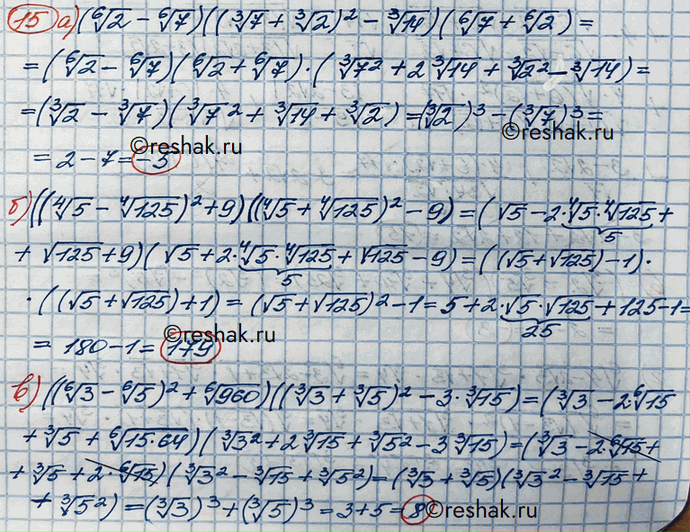 15 а) (⁶√2 − ⁶√7)((³√7 + ³√2)² − ³√14)(⁶√7 + ⁶√2) =
= (⁶√2 − ⁶√7)(⁶√2 + ⁶√7)·(³√7² + 2³√14 + ³√2² − ³√14) =
= (³√2 − ³√7)(³√7² + ³√14 + ³√2) = (³√2)³ − (³√7)³ =
©reshak.ru
©reshak.ru
= 2 − 7 = −5
б) ((⁴√5 − ⁴√125)² + 9)((⁴√5 + ⁴√125)² − 9) = (√5 − 2·⁴√5·⁴√125 +
5
+ √125 + 9)(√5 + 2·⁴√5·⁴√125 + √125 − 9) = ((√5 + √125) − 1)·
5
· ((√5 + √125) + 1) = (√5 + √125)² − 1 = 5 + 2·√5·√125 + 125 − 1 =
25
©reshak.ru
= 180 − 1 = 179
в) ((⁶√3 − ⁶√5)² + ⁶√960)((³√3 + ³√5)² − 3·³√15) = (³√3 − 2⁶√15
+ ³√5 + ⁶√15·64)(³√3² + 2³√15 + ³√5² − 3³√15) = (³√3 − 2·⁶√15 +
+ ³√5 + 2·⁶√15)(³√3² − ³√15 + ³√5²) = (³√3 + ³√5)(³√3² − ³√15 +
+ ³√5²) = (³√3)³ + (³√5)³ = 3 + 5 = 8
©reshak.ru